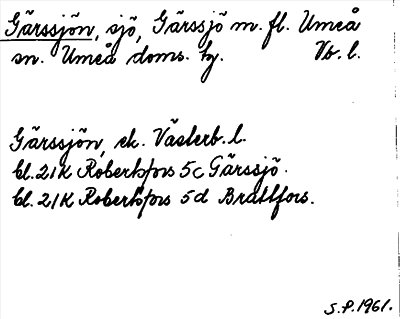 Gärssjön, sjö, Gärssjö m. fl. Umeå
sn. Umeå doms. hj. Vb. l.
Gärssjön, ek. Västerb. l.
bl. 21K Robertsfors 5c Gärssjö.
bl. 21K Robertsfors 5d Brattfors.
S.P. 1961.